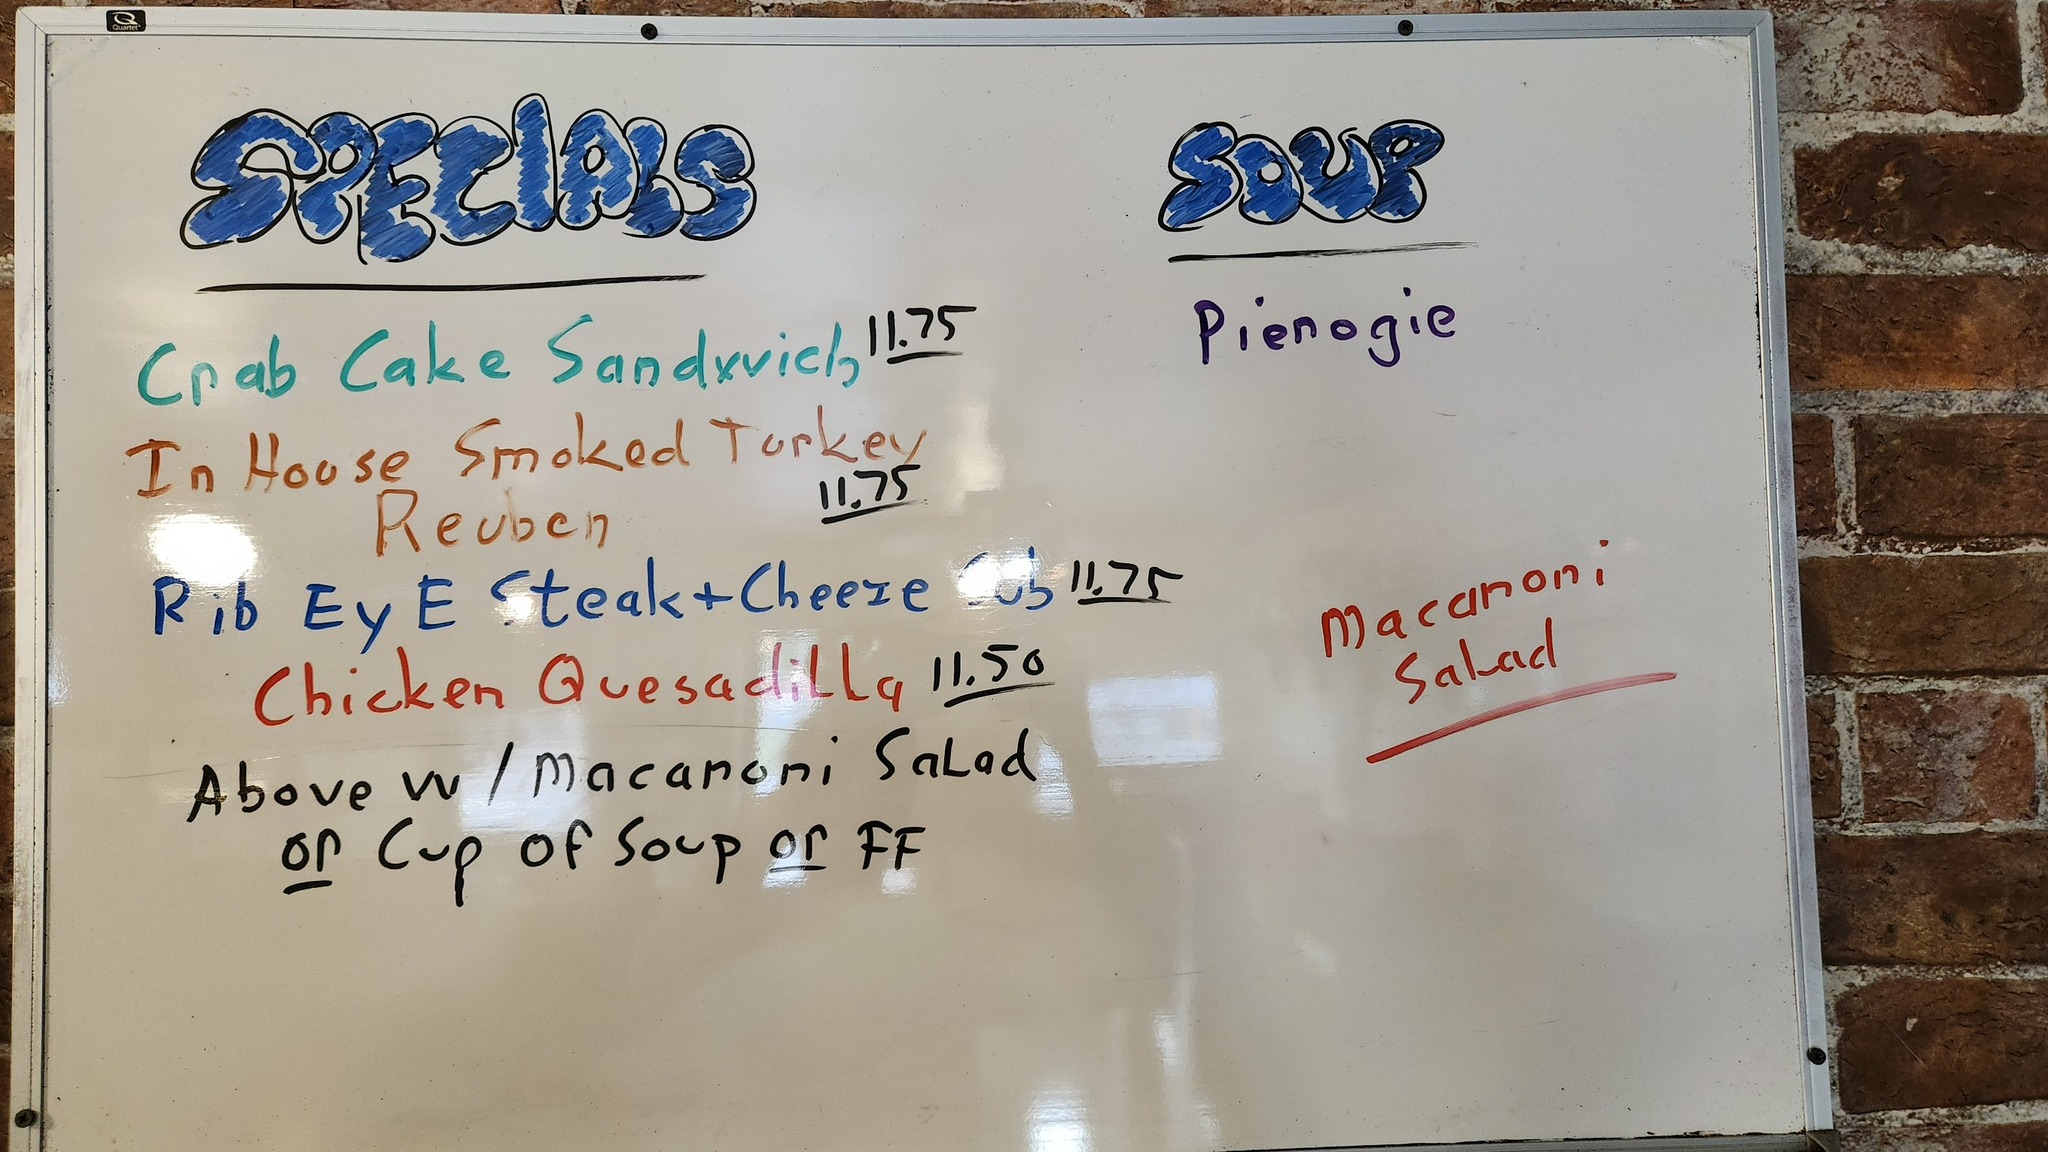 Quartet
SPECIALS
Crab Cake Sandwich 11.75
In House Smoked Turkey
Reuben 11.75
Rib EyE Steak + Cheeze Sub 11.75
Chicken Quesadilla 11.50
Above w/ Macaroni Salad
or Cup of Soup or FF
SOUP
Pierogie
Macaroni
Salad